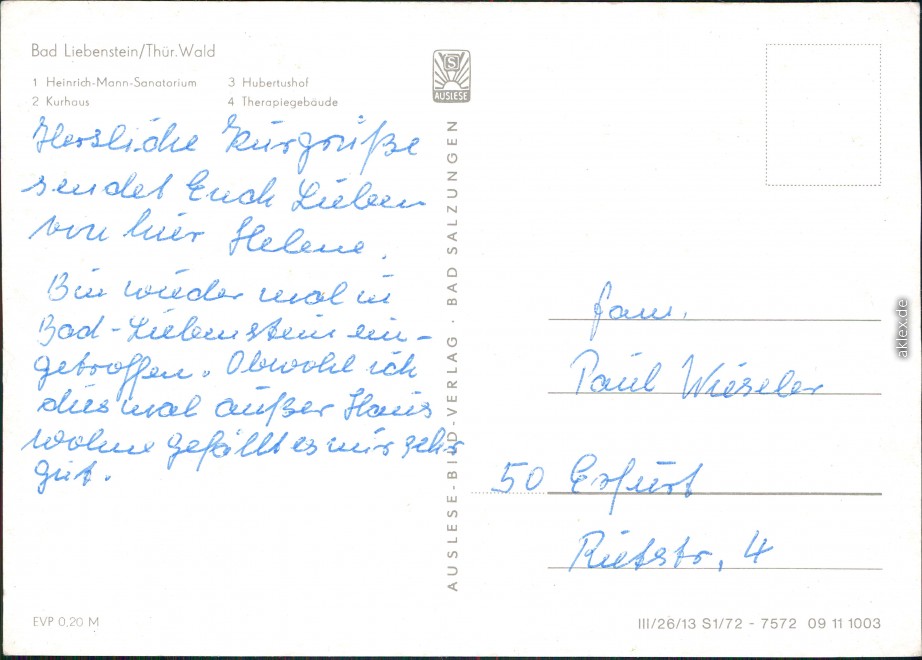 Bad Liebenstein/Thür.Wald
1 Heinrich-Mann-Sanatorium 3 Hubertushof
2 Kurhaus 4 Therapiegebäude
Herzliche Kurgrüße
sendet Euch Lieben
von hier Helene.
Bin wieder mal in
Bad-Liebenstein ein-
getroffen. Obwohl ich
dies mal außer Haus
wohne gefällt es mir sehr
gut.
S
AUSLESE
AUSLESE-BILD-VERLAG · BAD SALZUNGEN
Fam.
Paul Wieseler
50 Erfurt
Rietstr. 4
EVP 0,20 M
III/26/13 S1/72 - 7572 09 11 1003
aklex.de